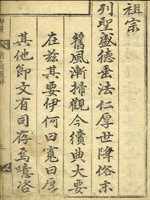 祖宗
列聖盛德至法仁厚世降俗末
舊風漸掃觀今續典大要
在茲其要伊何曰寬曰厚
其他節文有司存焉噫洛